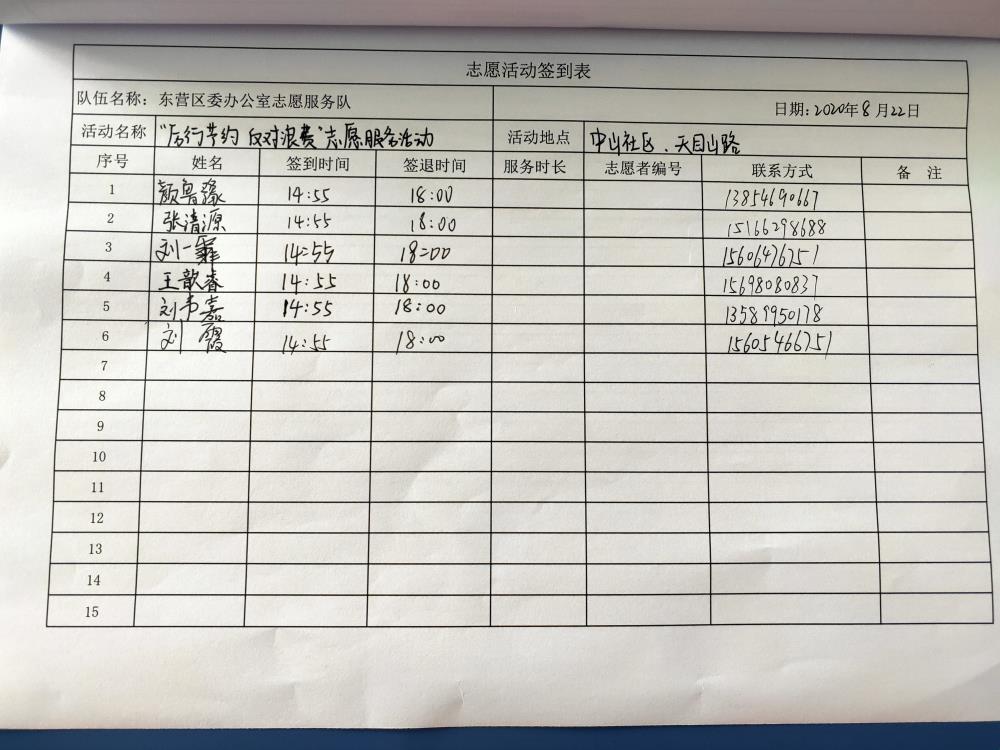 志愿活动签到表
队伍名称：东营区委办公室志愿服务队 日期：2020年8月22日
活动名称 "厉行节约 反对浪费"志愿服务活动 活动地点 中山社区、天目山路
序号 姓名 签到时间 签退时间 服务时长 志愿者编号 联系方式 备 注
1 颜鲁豫 14:55 18:00 13854690667
2 张清源 14:55 18:00 15166298688
3 刘一霏 14:55 18:00 15606476751
4 王歆睿 14:55 18:00 15698080837
5 刘韦嘉 14:55 18:00 13589950178
6 刘霞 14:55 18:00 15605466751
7
8
9
10
11
12
13
14
15